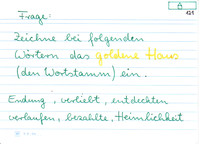 A
421
Frage:
Zeichne bei folgenden
Wörtern das goldene Haus
(den Wortstamm) ein.
Endung, verliebt, entdeckten
verlaufen, bezahlte, Heimlichkeit